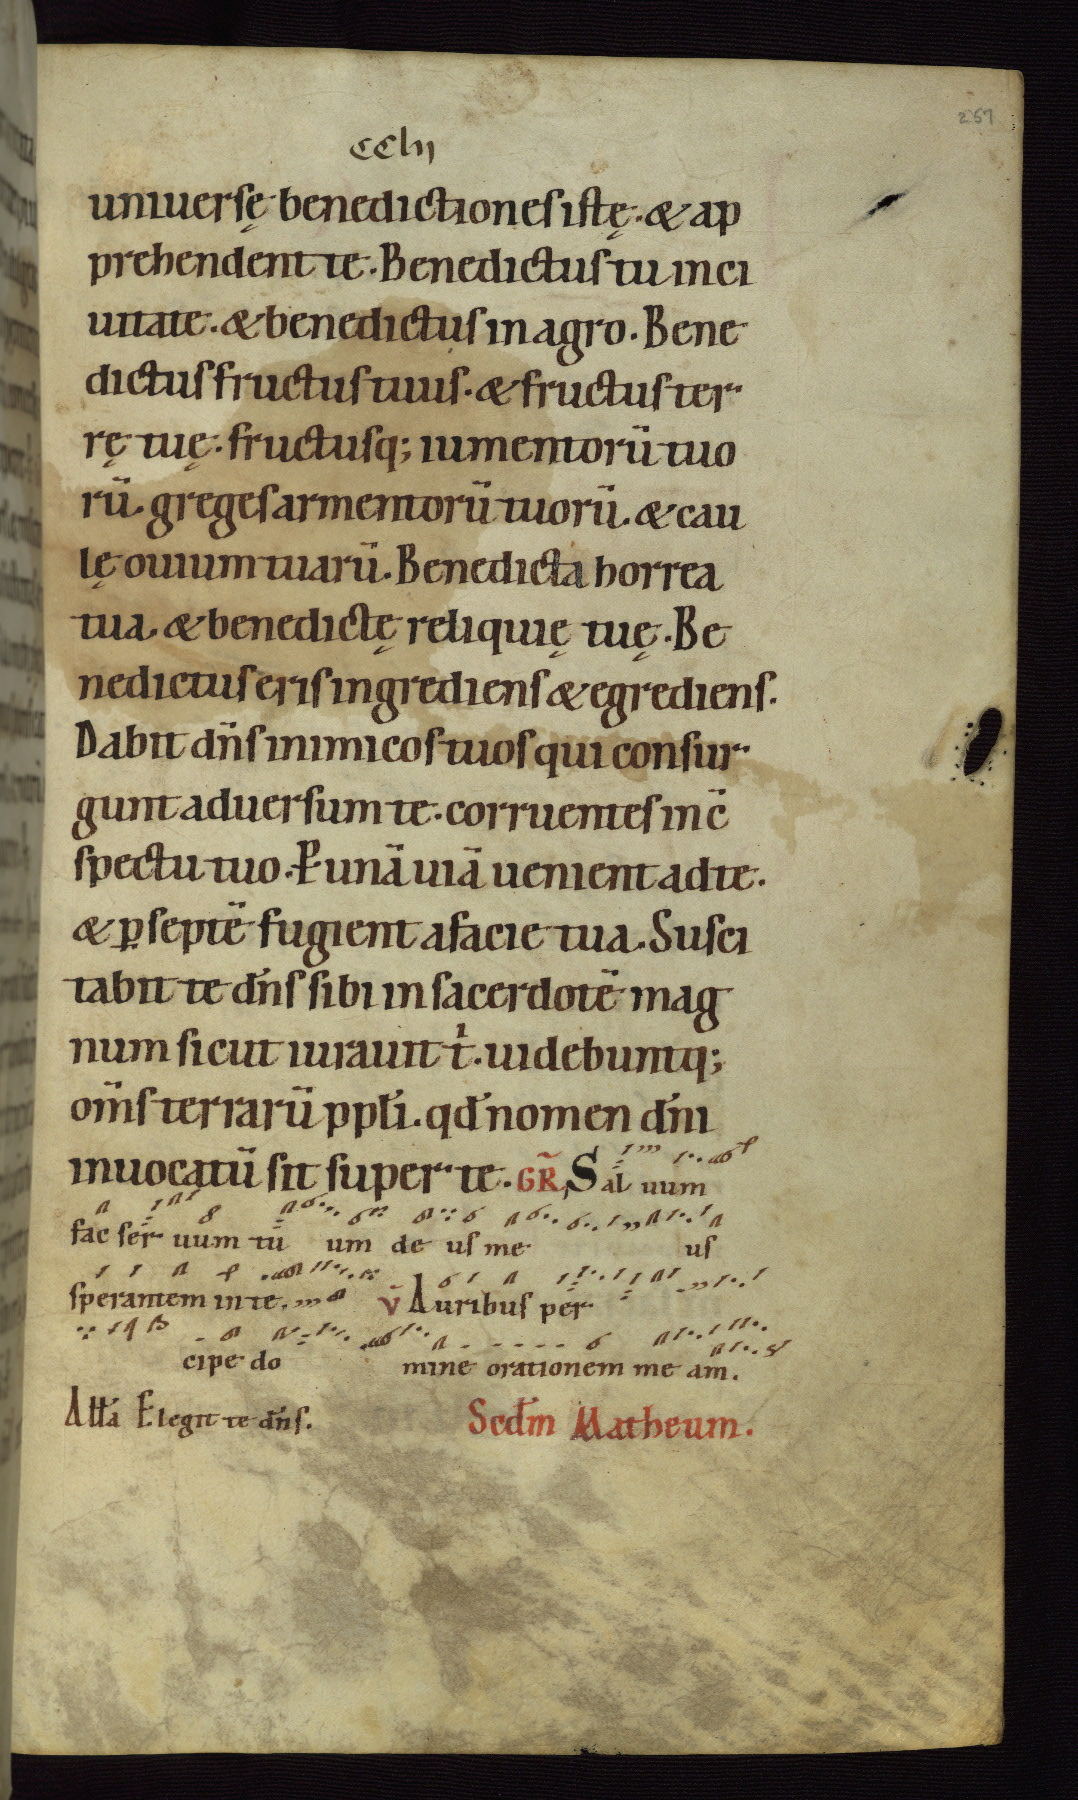 257
CClij
uniuersę benedictiones istę. & ap
prehendent te. Benedictus tu in ci
uitate. & benedictus in agro. Bene
dictus fructus tuus. & fructus ter
rę tuę. fructusq; iumentorū tuo
rū. greges armentorū tuorū. & cau
lę ouium tuarū. Benedicta horrea
tua. & benedictę reliquię tuę. Be
nedictus eris ingrediens & egrediens.
Dabit dn̄s inimicos tuos qui consur
gunt aduersum te. corruentes in c̄
spectu tuo. P unā uiā uenient ad te.
& ꝑ septē fugient a facie tua. Susci
tabit te dn̄s sibi in sacerdotē mag
num sicut iurauit t̍. uidebuntq;
om̄s terrarū ppl̄i. qd̄ nomen dn̄i
inuocatū sit super te. GR̄ Sal uum
fac ser uum tu um de us me us
sperantem in te. v̄ Auribus per
cipe do mine orationem me am.
All̄a Elegit te dn̄s. Scdm̄ Matheum.